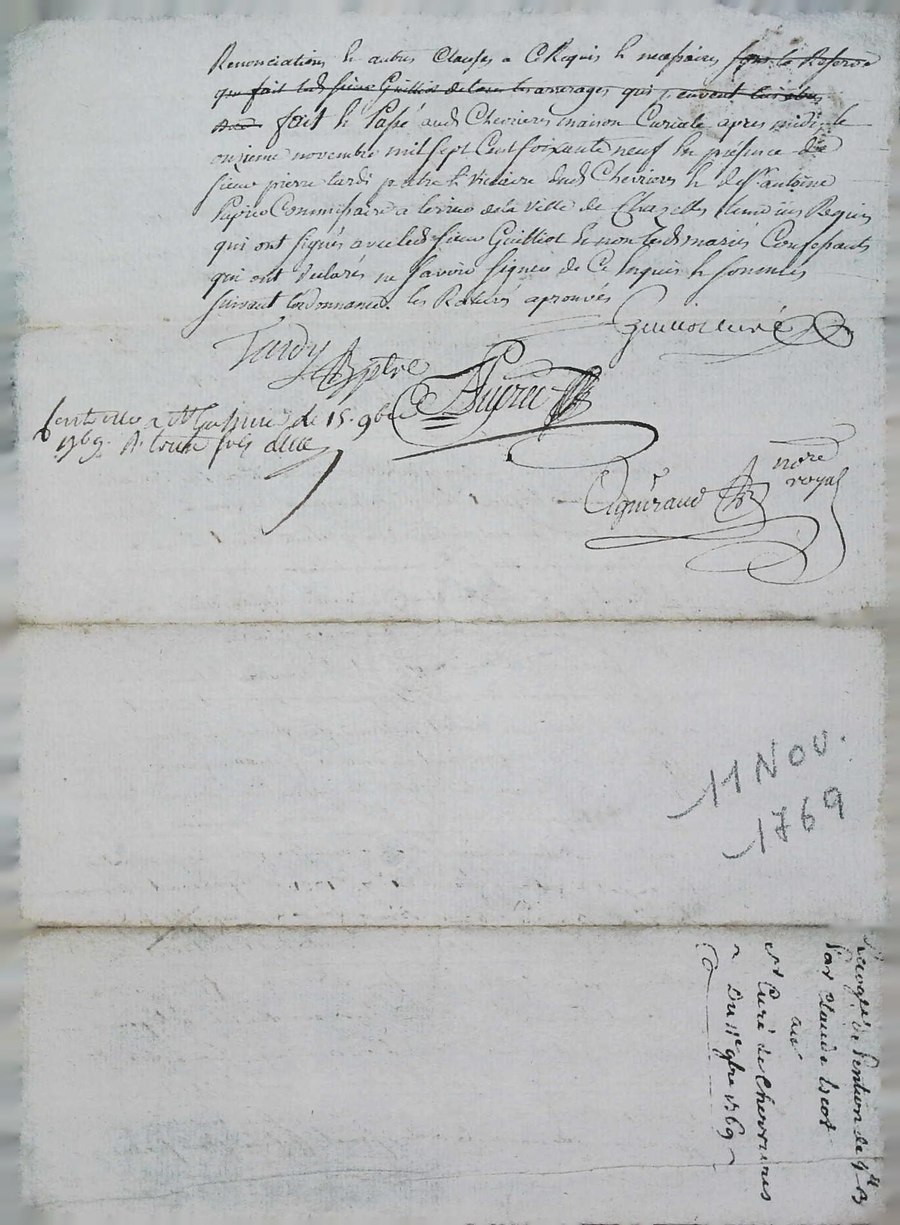 Renonciations & autres Clauses a Ce Requis & necessaires sous la Reserve
que fait ledt sieur Guilliot de tous les arrerages qui peuvent lui etre
fait & Passé audt Chevrieres maison Curiale apres midi le
onzieme novembre mil sept Cent soixante neuf En présence du
sieur pierre tardi pretre & Vicaire dudt Chevrieres & de Sr antoine
Commissaire a terrier de la Ville de Chazelles temoins Requis
qui ont signés avec ledt sieur Guilliot & non lesdts mariés Confessants
qui ont declarés ne savoir signer de Ce Enquis & sommés
suivant l'ordonnance. les Rature aprouvés
Guilliot curé
Tardy ptre
Dupré
Controllé a St de 15. 9bre
1769.
Agniraud nore
royal
11 NOV.
1769
de Pention de 4tt
Par Claude
au
Sr Curé de Chevrieres
Du 11e 9bre 1769